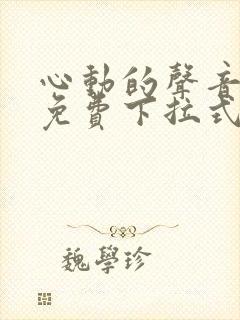 心動的聲音
免費下拉式
魏學珍